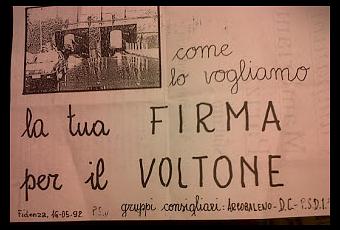 come
lo vogliamo
la tua FIRMA
per il VOLTONE
gruppi consigliari: ARCOBALENO - D.C. - P.S.D.I.
Fidenza, 16-05-92